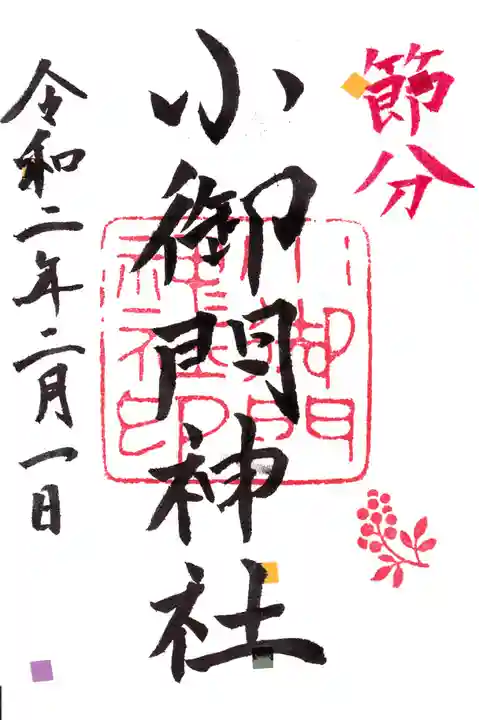 節分
小御門神社
小御門
神社印
令和二年二月一日